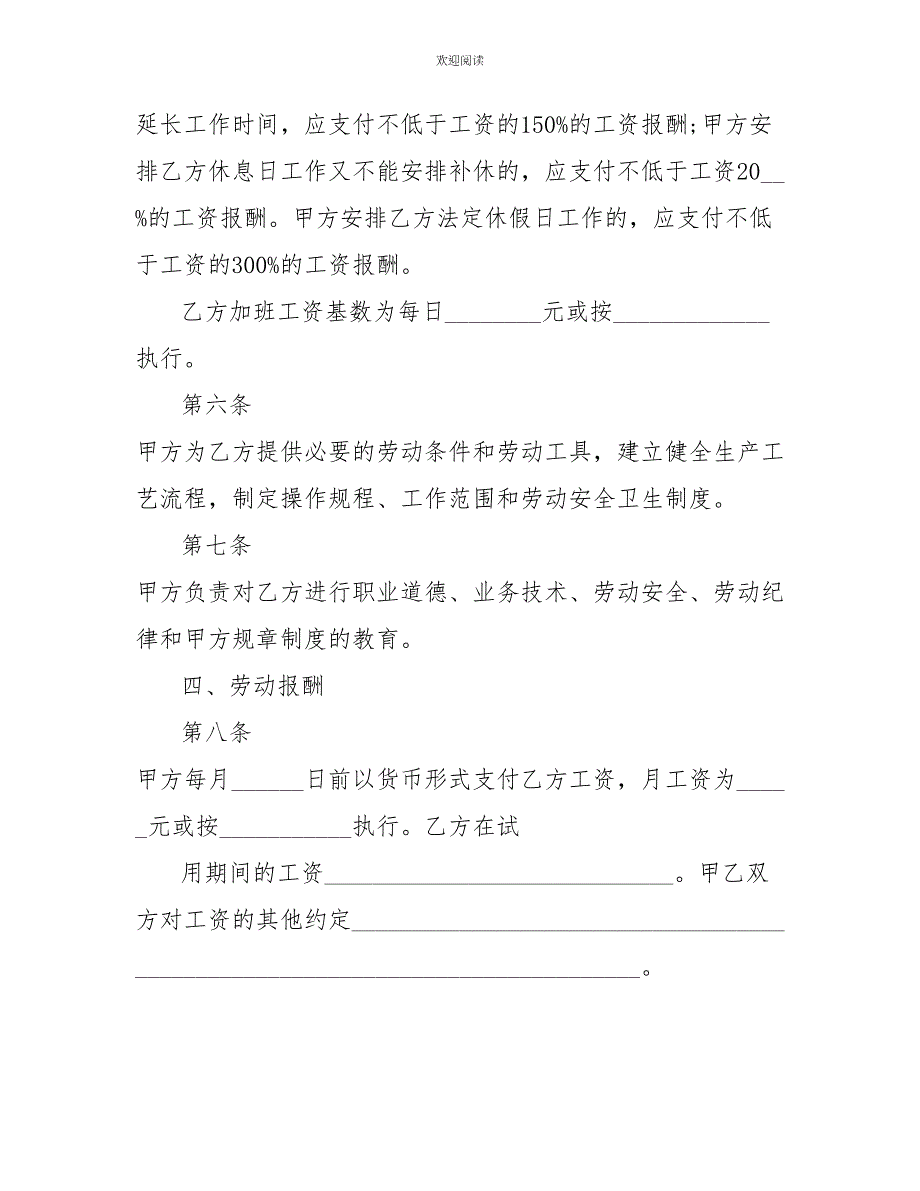 欢迎阅读
延长工作时间，应支付不低于工资的150%的工资报酬;甲方安
排乙方休息日工作又不能安排补休的，应支付不低于工资20__
%的工资报酬。甲方安排乙方法定休假日工作的，应支付不低
于工资的300%的工资报酬。
乙方加班工资基数为每日________元或按_____________
执行。
第六条
甲方为乙方提供必要的劳动条件和劳动工具，建立健全生产工
艺流程，制定操作规程、工作范围和劳动安全卫生制度。
第七条
甲方负责对乙方进行职业道德、业务技术、劳动安全、劳动纪
律和甲方规章制度的教育。
四、劳动报酬
第八条
甲方每月______日前以货币形式支付乙方工资，月工资为____
_元或按___________执行。乙方在试
用期间的工资_____________________________。甲乙双
方对工资的其他约定____________________________________
__________________________________________。